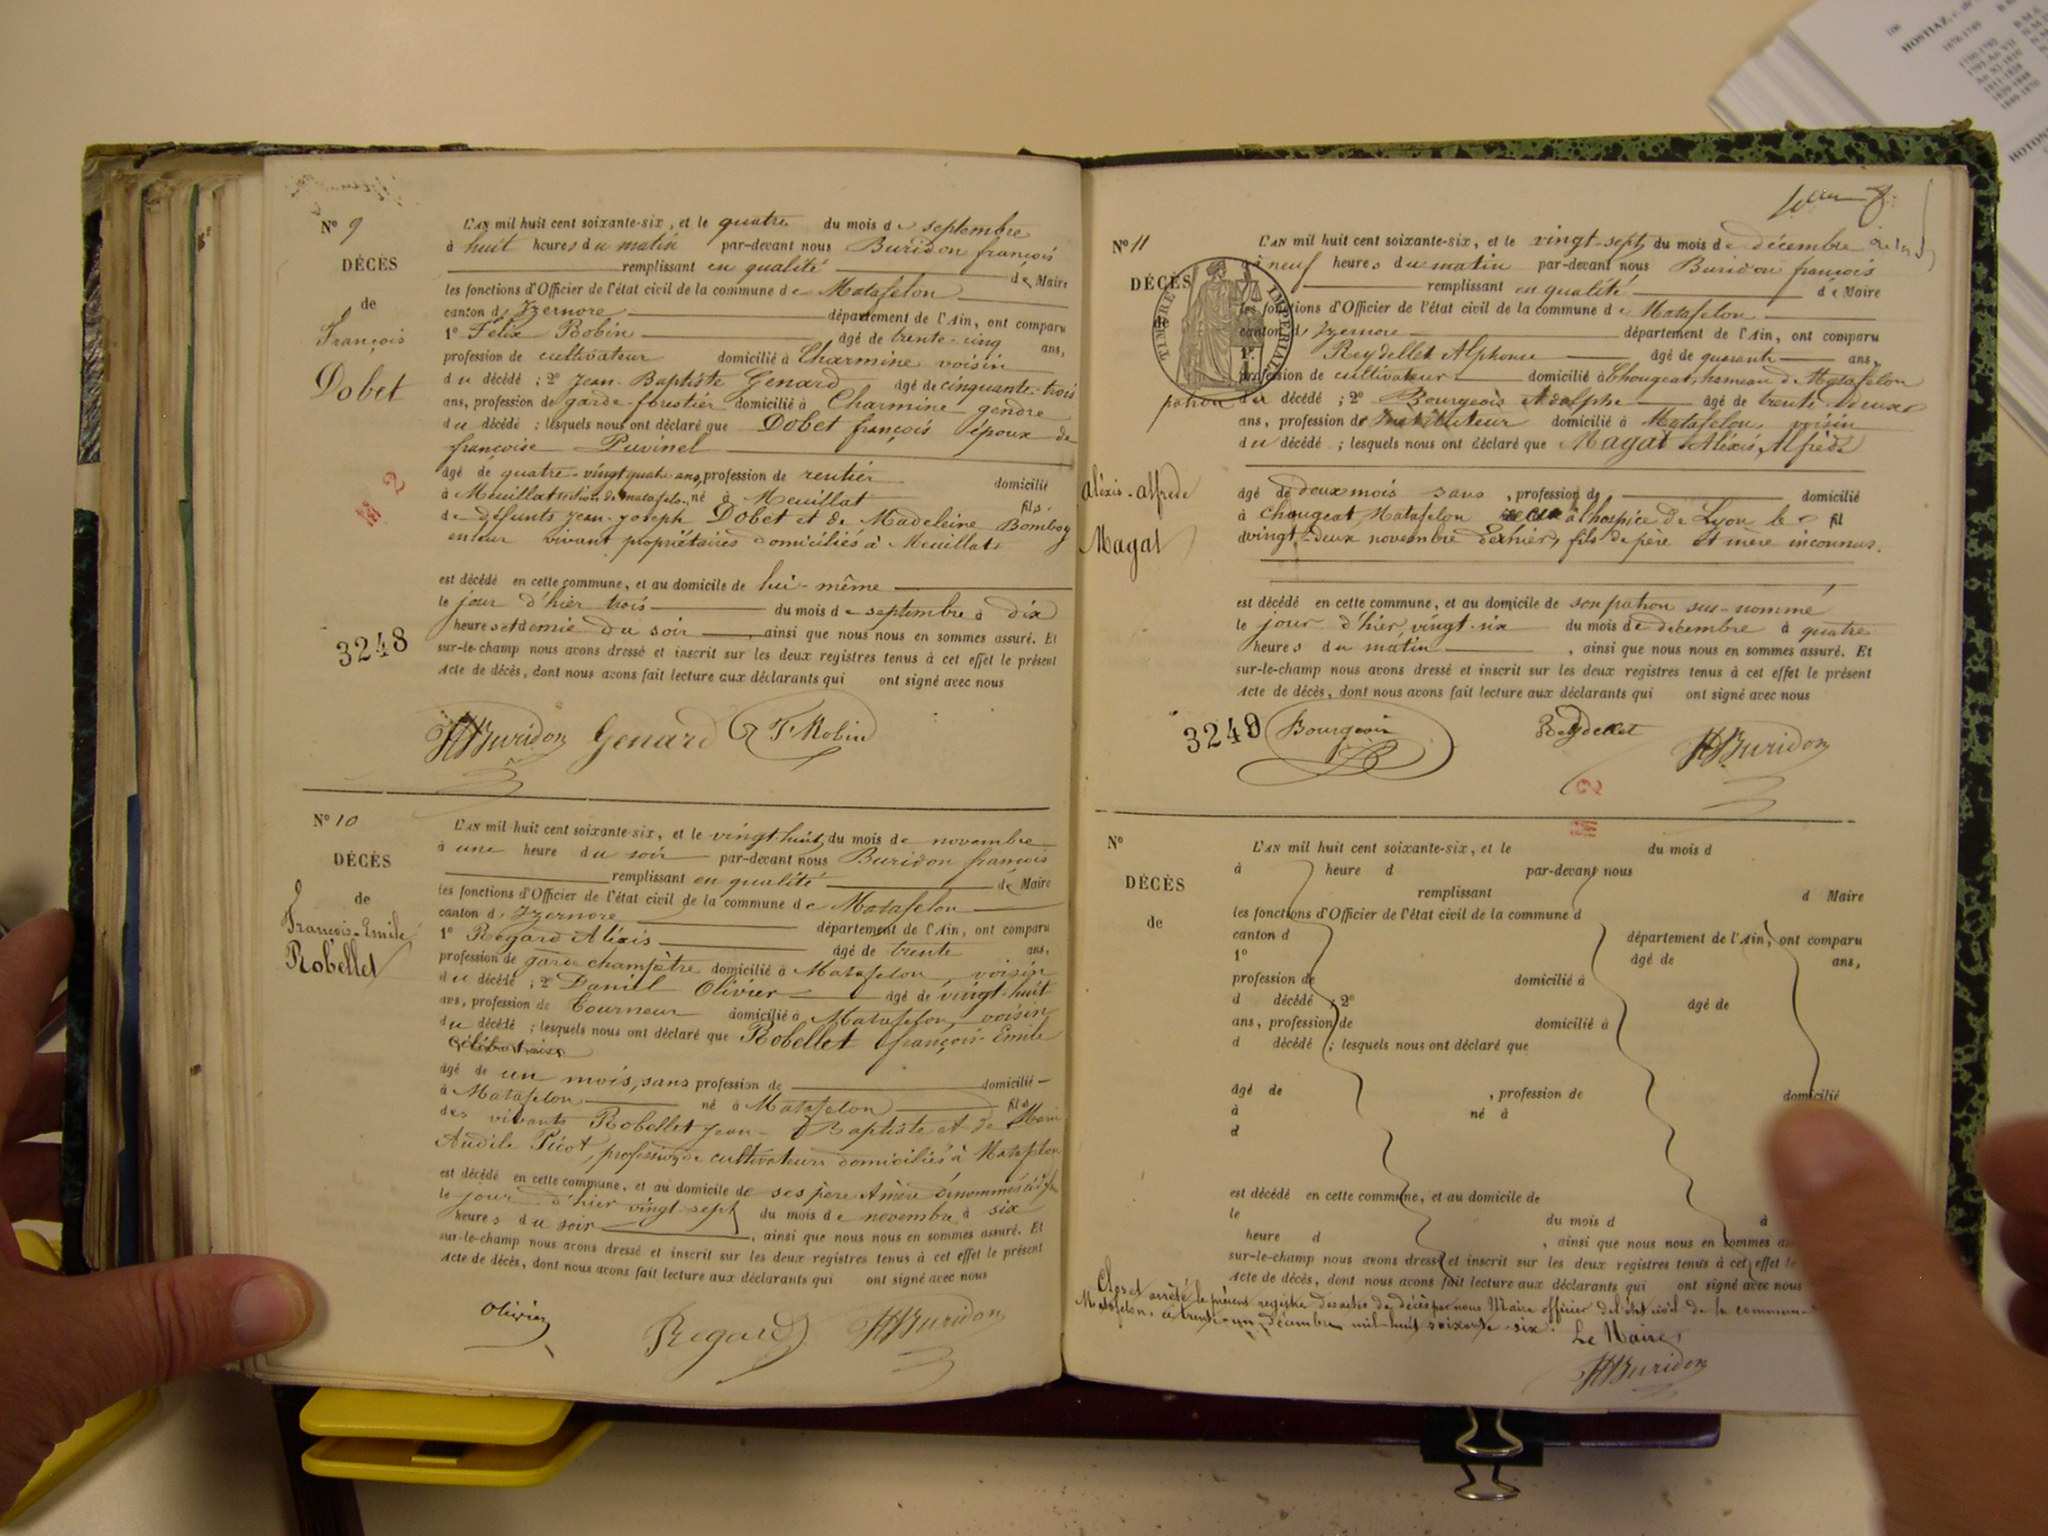 N° 9
DÉCÈS
de
François
Dobet
3248
L'AN mil huit cent soixante-six, et le quatre du mois de septembre
à huit heures du matin par-devant nous Buridon françois
remplissant en qualité de Maire
les fonctions d'Officier de l'état civil de la commune de Matafelon
canton d'Izernore département de l'Ain, ont comparu
1° Félix Robin âgé de trente-cinq ans,
profession de cultivateur domicilié à Charmine voisin
du décédé ; 2° Jean-Baptiste Genard âgé de cinquante-trois
ans, profession de garde-forestier domicilié à Charmine gendre
du décédé ; lesquels nous ont déclaré que Dobet françois époux de
françoise Puvinel
âgé de quatre-vingt quatre ans, profession de rentier domicilié
à Meuillat section de matafelon né à Meuillat fils
de défunts Jean-Joseph Dobet et de Madeleine Bomboy
en leur vivant propriétaires domiciliés à Meuillat
est décédé en cette commune, et au domicile de lui-même
le jour d'hier trois du mois de septembre à dix
heures et demie du soir, ainsi que nous nous en sommes assuré. Et
sur-le-champ nous avons dressé et inscrit sur les deux registres tenus à cet effet le présent
Acte de décès, dont nous avons fait lecture aux déclarants qui ont signé avec nous
Buridon Genard F Robin
N° 10
DÉCÈS
de
François-Emile
Robellet
L'AN mil huit cent soixante-six, et le vingt-huit du mois de novembre
à une heure du soir par-devant nous Buridon françois
remplissant en qualité de Maire
les fonctions d'Officier de l'état civil de la commune de Matafelon
canton d'Izernore département de l'Ain, ont comparu
1° Regard Aléxis âgé de trente ans,
profession de garde champêtre domicilié à Matafelon voisin
du décédé ; 2° Daniel Olivier âgé de vingt-huit
ans, profession de Tourneur domicilié à Matafelon, voisin
du décédé ; lesquels nous ont déclaré que Robellet françois Emile
célibataire
âgé de un mois, sans profession de domicilié
à Matafelon né à Matafelon fils
des vivants Robellet Jean-Baptiste et de Marie
Audile Picot, profession de cultivateurs domiciliés à Matafelon
est décédé en cette commune, et au domicile de ses père et mère dénommés
le jour d'hier vingt-sept du mois de novembre à six
heures du soir, ainsi que nous nous en sommes assuré. Et
sur-le-champ nous avons dressé et inscrit sur les deux registres tenus à cet effet le présent
Acte de décès, dont nous avons fait lecture aux déclarants qui ont signé avec nous
Olivier Regard Buridon
N° 11
DÉCÈS
de
Aléxis-Alfrede
Magat
3249
TIMBRE IMPERIAL
L'AN mil huit cent soixante-six, et le vingt-sept du mois de décembre
à neuf heures du matin par-devant nous Buridon françois
remplissant en qualité de Maire
les fonctions d'Officier de l'état civil de la commune de Matafelon
canton d'Izernore département de l'Ain, ont comparu
1° Reydellet Alphonse âgé de quarante ans,
profession de cultivateur domicilié à Chougeat, hameau de Matafelon
patron du décédé ; 2° Bourgeois Adolphe âgé de trente-deux
ans, profession de Instituteur domicilié à Matafelon, voisin
du décédé ; lesquels nous ont déclaré que Magat Aléxis, Alfrède
âgé de deux mois sans, profession de domicilié
à Chougeat Matafelon à l'hospice de Lyon le fil
vingt-deux novembre dernier, fils de père et mère inconnus.
est décédé en cette commune, et au domicile de son patron sus-nommé
le jour d'hier, vingt-six du mois de décembre à quatre
heures du matin, ainsi que nous nous en sommes assuré. Et
sur-le-champ nous avons dressé et inscrit sur les deux registres tenus à cet effet le présent
Acte de décès, dont nous avons fait lecture aux déclarants qui ont signé avec nous
Bourgeois Reydellet Buridon
N°
DÉCÈS
de
L'AN mil huit cent soixante-six, et le du mois d
à heure d par-devant nous
remplissant d Maire
les fonctions d'Officier de l'état civil de la commune d
canton d département de l'Ain, ont comparu
1° âgé de ans,
profession de domicilié à
d décédé ; 2° âgé de
ans, profession de domicilié à
d décédé ; lesquels nous ont déclaré que
âgé de , profession de domicilié
à né à
d
est décédé en cette commune, et au domicile de
le du mois d à
heure d , ainsi que nous nous en sommes
sur-le-champ nous avons dressé et inscrit sur les deux registres tenus à cet effet le
Acte de décès, dont nous avons fait lecture aux déclarants qui ont signé avec nous
Clos et arrêté le présent registre des actes de décès par nous Maire officier de l'état civil de la commune
Matafelon, à trente-un décembre mil-huit soixante-six. Le Maire,
Buridon
HOSTIAZ